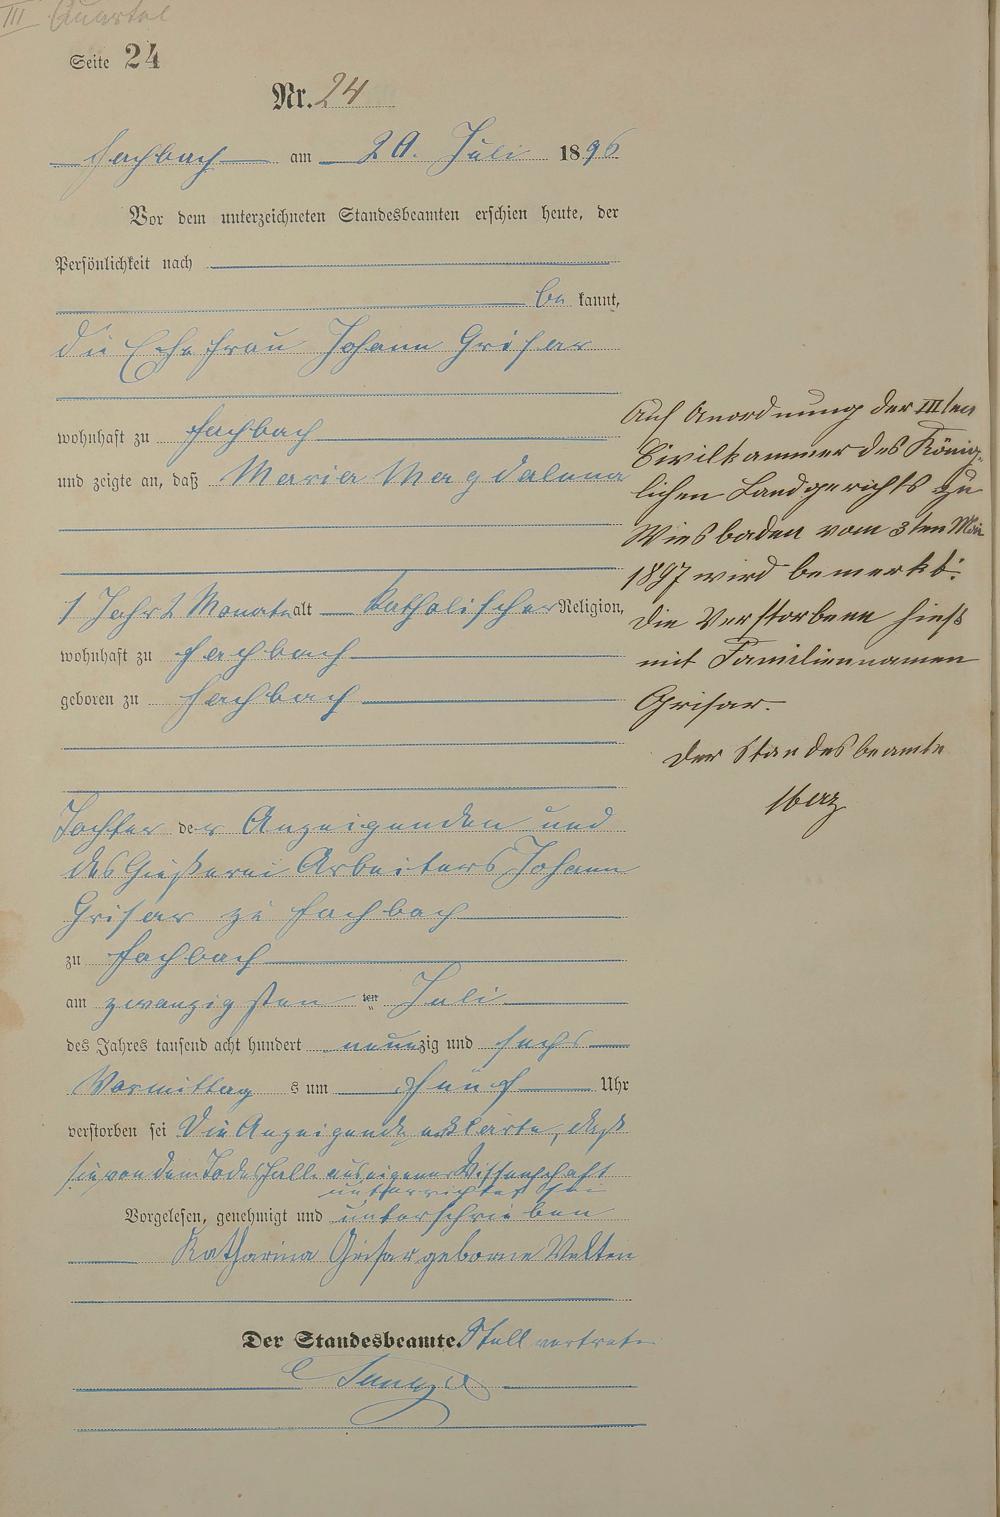 III Quartal
Seite 24
Nr. 24
Fachbach am 20. Juli 1896
Vor dem unterzeichneten Standesbeamten erschien heute, der
Persönlichkeit nach
be kannt,
die Ehefrau Johann Grisar
wohnhaft zu Fachbach
und zeigte an, daß Maria Magdalena
1 Jahr 2 Monate alt katholischer Religion,
wohnhaft zu Fachbach
geboren zu Fachbach
Tochter der Anzeigenden und
des Gießerei Arbeiters Johann
Grisar zu Fachbach
zu Fachbach
am zwanzigsten ten Juli
des Jahres tausend acht hundert neunzig und sechs
Vormittag s um fünf Uhr
verstorben sei Die Anzeigende erklärte, daß
sie von dem Todesfalle aus eigener Wissenschaft
unterrichtet sei
Vorgelesen, genehmigt und unterschrieben
Katharina Grisar geborne Velten
Der Standesbeamte. Stellvertreter
Auf Anordnung der IIIten
Civilkammer des König-
lichen Landgerichts zu
Wiesbaden vom 3ten Mai
1897 wird bemerkt:
Die Verstorbene hieß
mit Familiennamen
Grisar.
Der Standesbeamte